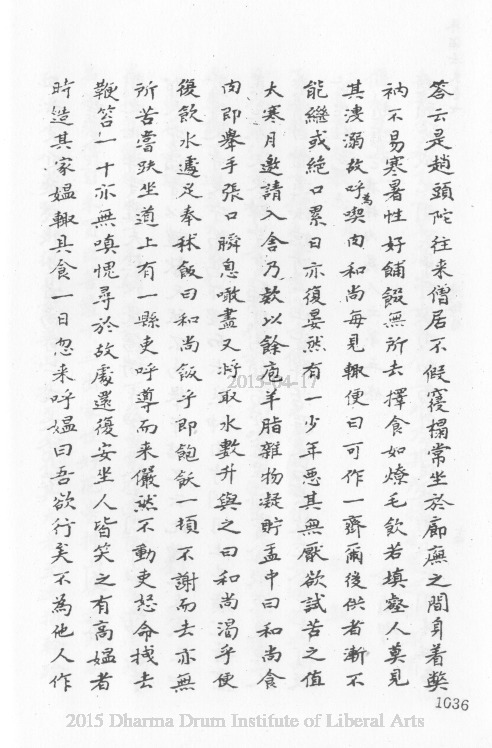 答云是趙頭陀往来僧居不假寢榻常坐於廊廡之間身着獘
衲不易寒暑性好餔餟無所去擇食如燎毛飲若填壑人莫見
其洩溺故呼為喫肉和尚每見輒便曰可作一齋爾後供者漸不
能繼或絶口累日亦復晏然有一少年惡其無厭欲試苦之值
大寒月邀請入舍乃欵以餘庖羊脂雜物凝貯盂中曰和尚食
肉即舉手張口瞬息噉盡又將取水數升與之曰和尚渴乎便
復飲水遽足奉秫飯曰和尚飯乎即飽飫一頓不謝而去亦無
所苦嘗趺坐道上有一縣吏呼導而来儼然不動吏怒命拽去
鞭笞一十亦無嗔愧尋於故處還復安坐人皆笑之有高媼者
時造其家媼輙具食一日忽来呼媼曰吾欲行矣不為他人作
1036
2015-04-17
2015 Dharma Drum Institute of Liberal Arts